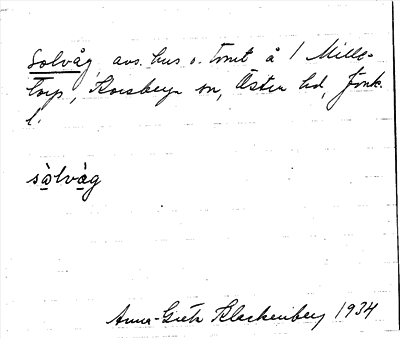 Solvåg, avs. hus o. tomt å 1 Mille-
torp, Korsberga sn, Östra hd, Jönk.
l.
sòlvàg
Anna-Greta Klackenberg 1934